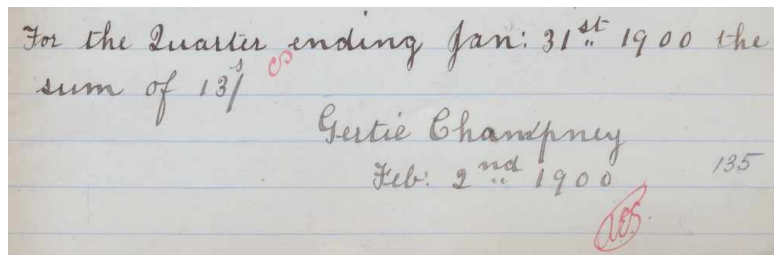 For the Quarter ending Jan: 31st 1900 the
sum of 13s/
Gertie Champney
Feb: 2nd 1900
135